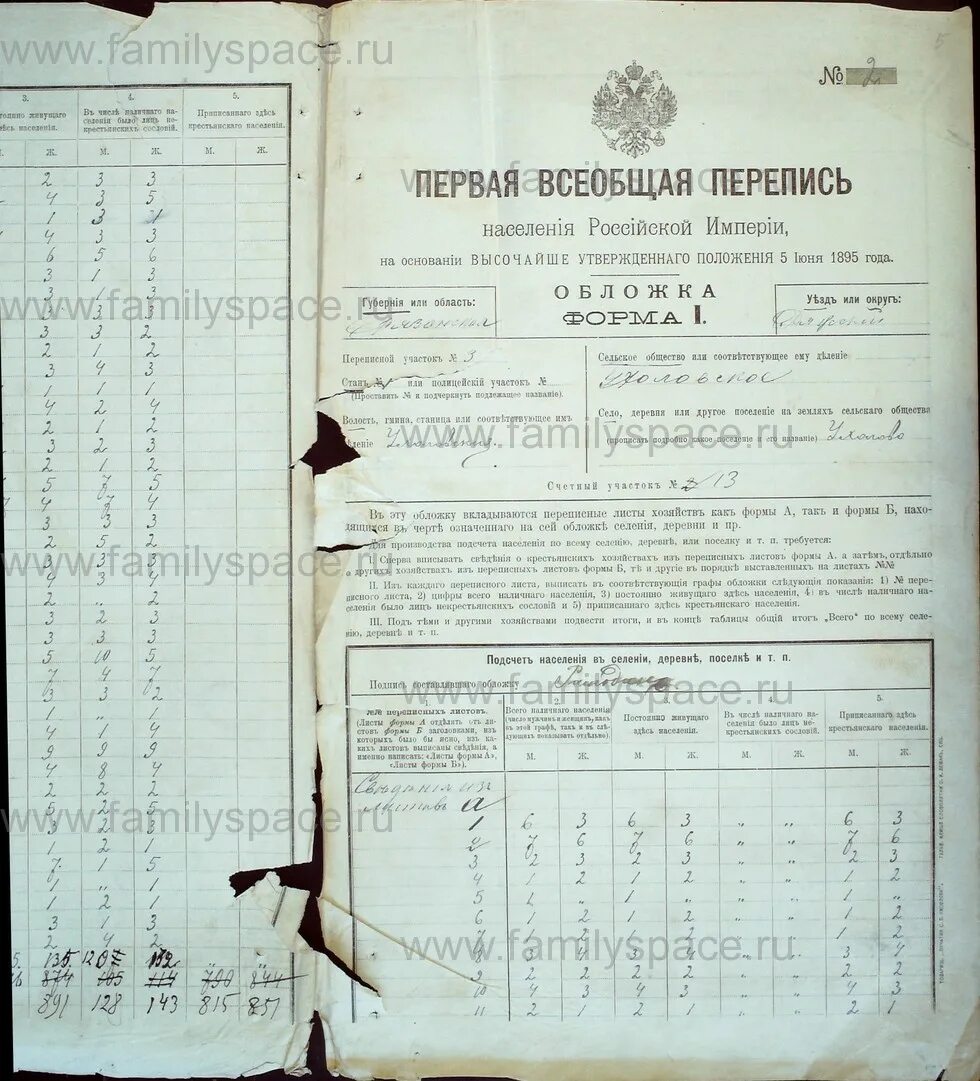 www.familyspace.ru
3.
4.
5.
Въ числѣ наличнаго на-
селенія было лицъ не-
крестьянскихъ сословій.
Приписаннаго здѣсь
крестьянскаго населенія.
Ж. М. Ж. М. Ж.
2 3 3
4 3 5
1 3 1
4 3 3
6 5 6
3 1 3
3 3 2
2 1 2
3 4 3
1 1 1
4 2 4
2 1 2
3 2 3
2 1 2
3 3 3
2 5 2
2 „ 2
3 2 3
3 3 3
5 10 5
7 4 7
3 3 2
1 „ 1
4 1 4
9 9 9
4 8 4
2 2 2
1 2 1
7 1 5
1 „ 1
1 2 1
3 1 3
2 4 2
874 105 114 790 844
891 128 143 815 851
№ 2
ПЕРВАЯ ВСЕОБЩАЯ ПЕРЕПИСЬ
населенія Россійской Имперіи,
на основаніи ВЫСОЧАЙШЕ УТВЕРЖДЕННАГО ПОЛОЖЕНІЯ 5 Іюня 1895 года.
ОБЛОЖКА
ФОРМА I.
Губернія или область:
Рязанская
Уѣздъ или округъ:
Переписной участокъ № 3
Станъ № или полицейскій участокъ №
(Проставить № и подчеркнуть подлежащее названіе).
Волость, гмина, станица или соотвѣтствующее имъ
дѣленіе Ухоловская
Сельское общество или соотвѣтствующее ему дѣленіе
Ухоловское
Село, деревня или другое поселеніе на земляхъ сельскаго общества
(прописать подробно какое поселеніе и его названіе) Ухолово
Счетный участокъ № 13
Въ эту обложку вкладываются переписные листы хозяйствъ какъ формы А, такъ и формы Б, нахо-
дящихся въ чертѣ означеннаго на сей обложкѣ селенія, деревни и пр.
Для производства подсчета населенія по всему селенію, деревнѣ, или поселку и т. п. требуется:
I. Сперва вписывать свѣдѣнія о крестьянскихъ хозяйствахъ изъ переписныхъ листовъ формы А, а затѣмъ, отдѣльно
о другихъ хозяйствахъ изъ переписныхъ листовъ формы Б, тѣ и другіе въ порядкѣ выставленныхъ на листахъ №№
II. Изъ каждаго переписного листа, выписать въ соотвѣтствующія графы обложки слѣдующія показанія: 1) № пере-
писного листа, 2) цифры всего наличнаго населенія, 3) постоянно живущаго здѣсь населенія, 4) въ числѣ наличнаго на-
селенія было лицъ некрестьянскихъ сословій и 5) приписаннаго здѣсь крестьянскаго населенія.
III. Подъ тѣми и другими хозяйствами подвести итоги, и въ концѣ таблицы общій итогъ „Всего" по всему селе-
нію, деревнѣ и т. п.
Подсчетъ населенія въ селеніи, деревнѣ, поселкѣ и т. п.
Подпись составлявшаго обложку
1. 2. 3. 4. 5.
№№ переписныхъ листовъ.
(Листы формы А отдѣлять отъ ли-
стовъ формы Б заголовками, изъ
которыхъ было бы ясно, изъ ка-
кихъ листовъ выписаны свѣдѣнія, а
именно написать: «Листы формы А»,
«Листы формы Б»).
Всего наличнаго населенія
(число мужчинъ и женщинъ, какъ
въ этой графѣ, такъ и въ слѣ-
дующихъ показывать отдѣльно).
Постоянно живущаго
здѣсь населенія.
Въ числѣ наличнаго на-
селенія было лицъ не-
крестьянскихъ сословій.
Приписаннаго здѣсь
крестьянскаго населенія.
М. Ж. М. Ж. М. Ж. М. Ж.
Свѣдѣнія изъ
листовъ а
1 6 3 6 3 „ „ 6 3
2 7 6 7 6 „ „ 7 6
3 2 3 2 3 „ „ 2 3
4 1 2 1 2 „ „ 1 2
5 1 „ 1 „ „ „ 1 „
6 1 2 1 2 „ „ 1 2
7 1 2 1 2 „ „ 1 2
8 3 4 3 4 „ „ 3 4
9 2 2 2 2 „ „ 2 2
10 4 3 4 3 „ „ 4 3
11 2 1 2 1 „ „ 2 1